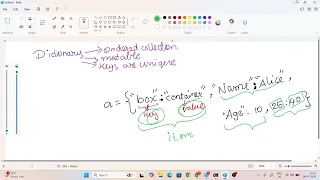 Dictionary → ordered collection
→ mutable
→ keys are unique
a = {"box" : "container", "Name" : "Alice",
key value "Age" : 10, 25:40}
item